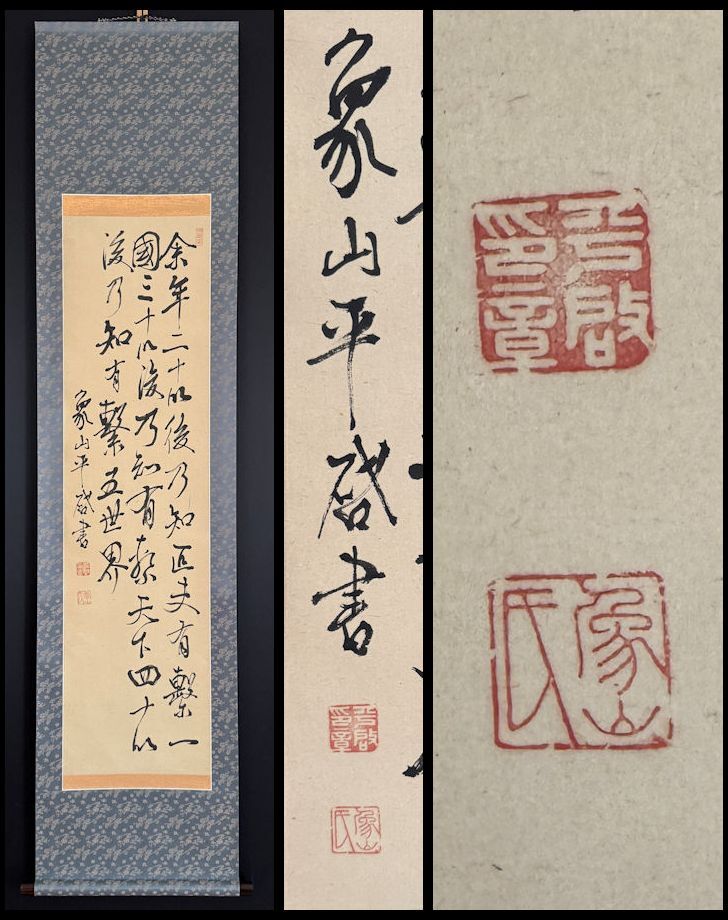 余年二十以後乃知匹夫有繋一
國三十以後乃知有繋天下四十以
後乃知有繋五世界
象山平啓書
平啓印章
象山氏
象山平啓書
平啓印章
象山氏
平啓印章
象山氏